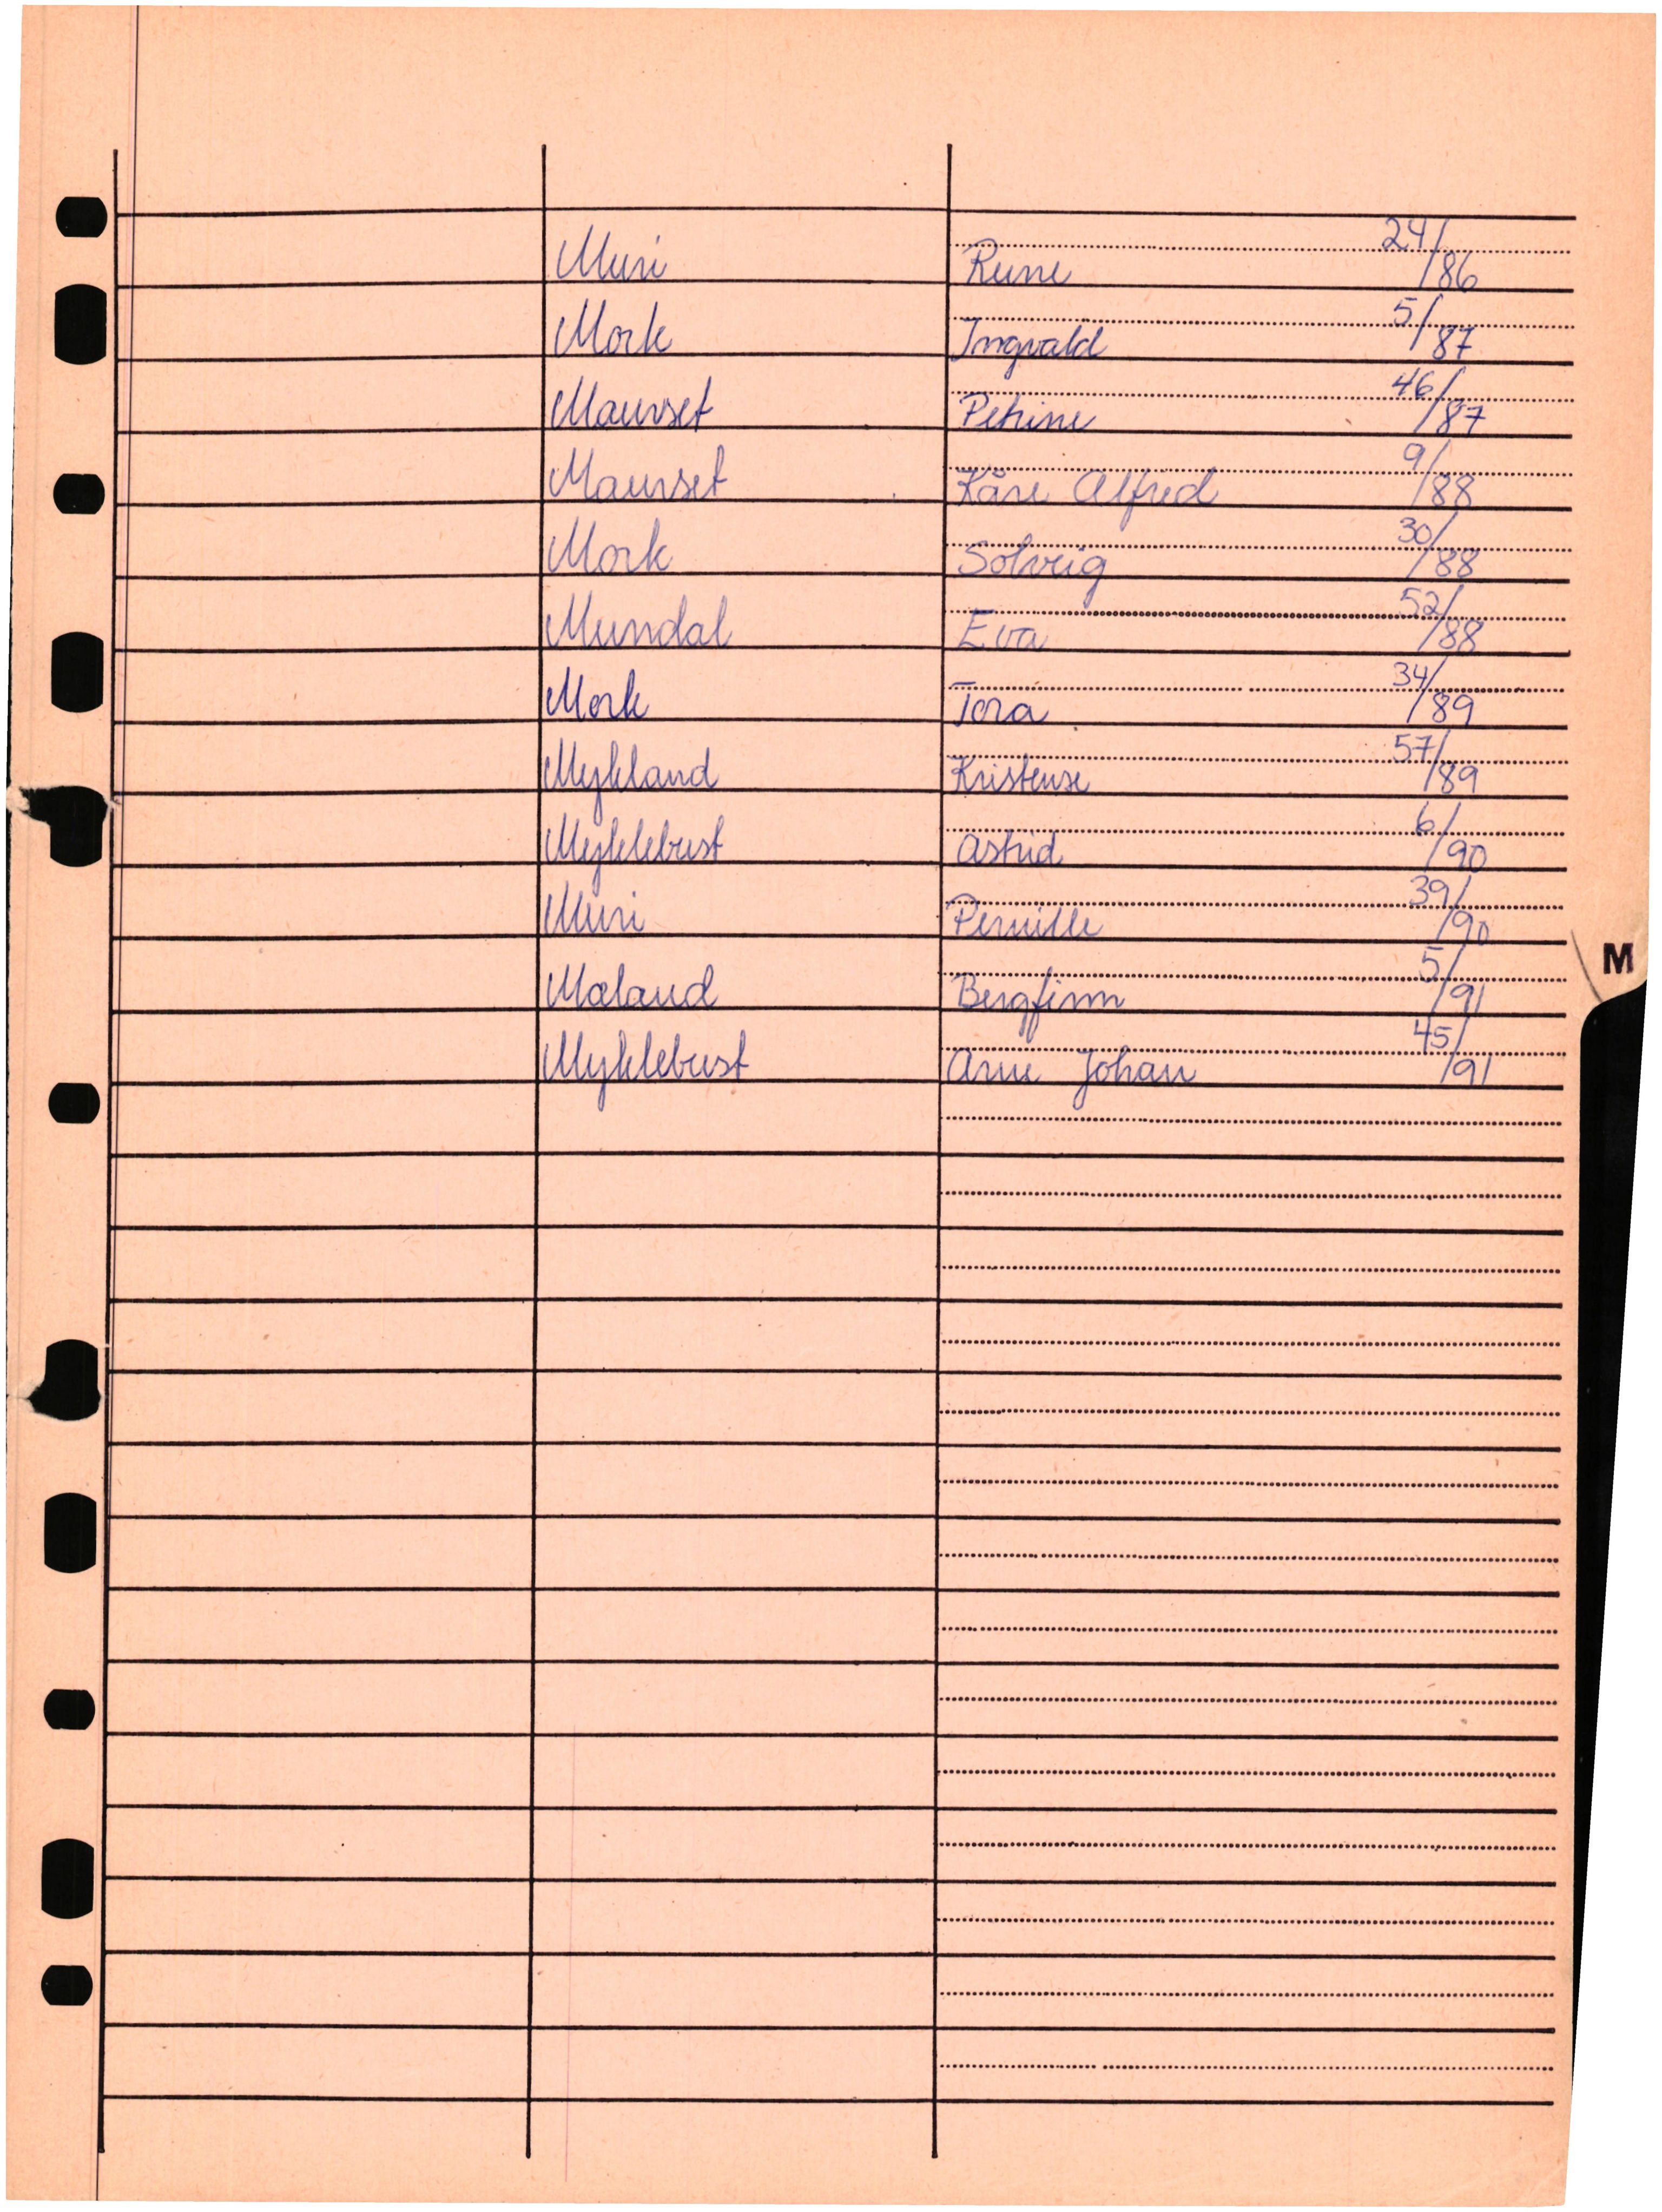 Muri Rune 24/86
Mork Ingvald 5/87
Maurset Petrine 46/87
Maurset Kåre Alfred 9/88
Mork Solveig 30/88
Mundal Eva 52/88
Mork Tora 34/89
Mykland Kristense 57/89
Myklebust Astrid 6/90
Muri Pernille 39/90
M
Mæland Bergfinn 5/91
Myklebust Arne Johan 45/91